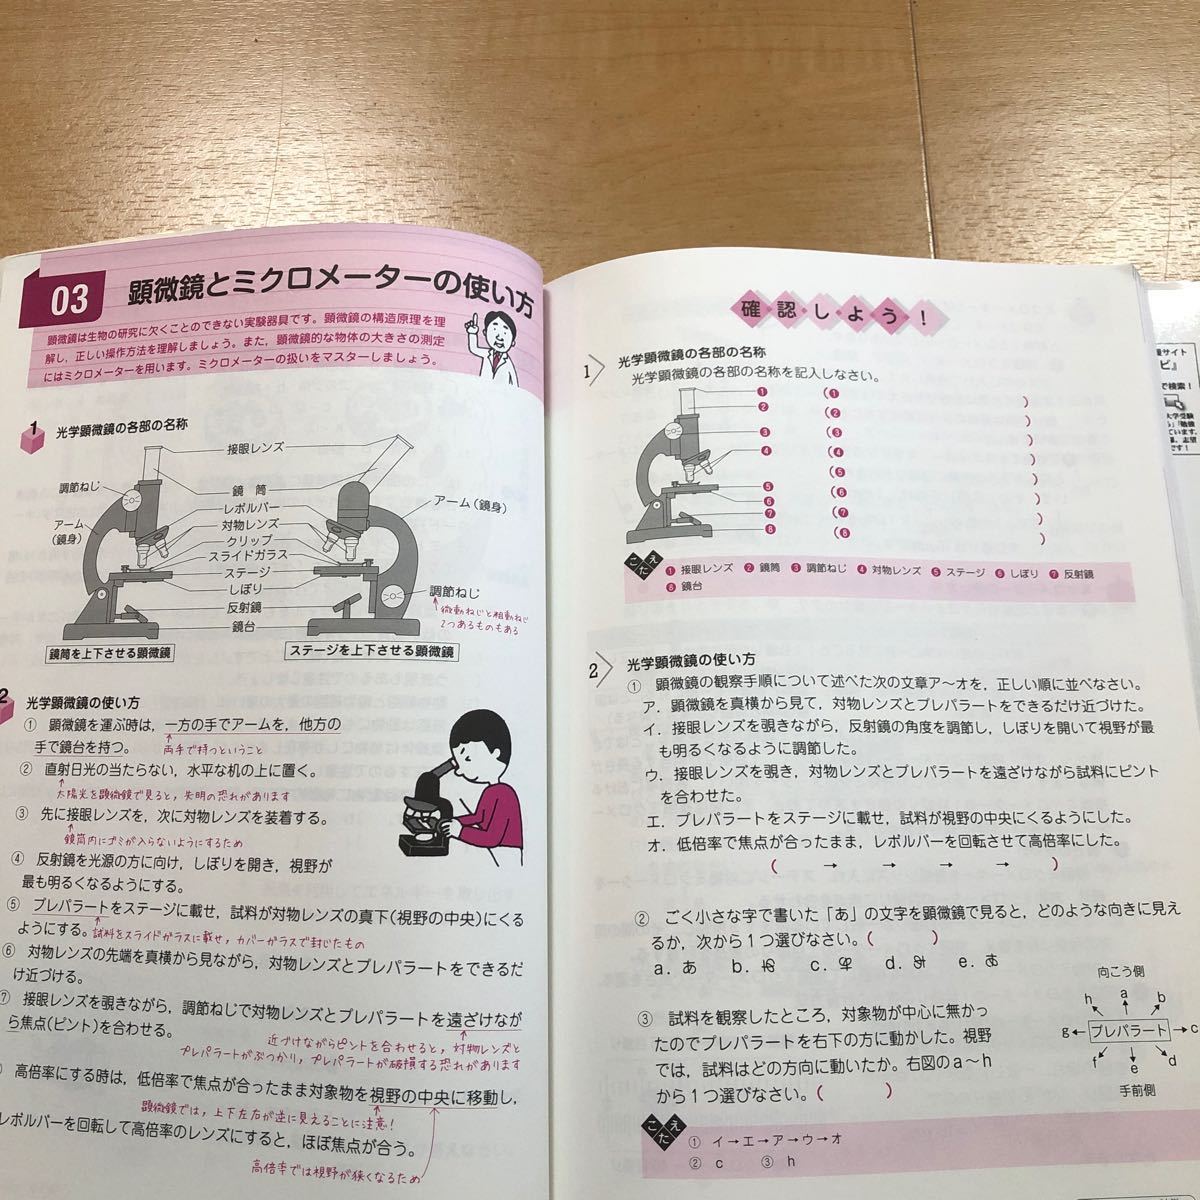 03
顕微鏡とミクロメーターの使い方
顕微鏡は生物の研究に欠くことのできない実験器具です。顕微鏡の構造原理を理
解し，正しい操作方法を理解しましょう。また，顕微鏡的な物体の大きさの測定
にはミクロメーターを用います。ミクロメーターの扱いをマスターしましょう。
1 光学顕微鏡の各部の名称
接眼レンズ
調節ねじ
鏡　筒
アーム（鏡身）
レボルバー
アーム
（鏡身）
対物レンズ
クリップ
スライドガラス
ステージ
しぼり
調節ねじ
反射鏡
微動ねじと粗動ねじ
2つあるものもある
鏡台
鏡筒を上下させる顕微鏡
ステージを上下させる顕微鏡
2 光学顕微鏡の使い方
① 顕微鏡を運ぶ時は，一方の手でアームを，他方の
手で鏡台を持つ。
両手で持つということ
② 直射日光の当たらない，水平な机の上に置く。
太陽光を顕微鏡で見ると，失明の恐れがあります
③ 先に接眼レンズを，次に対物レンズを装着する。
鏡筒内にゴミが入らないようにするため
④ 反射鏡を光源の方に向け，しぼりを開き，視野が
最も明るくなるようにする。
⑤ プレパラートをステージに載せ，試料が対物レンズの真下（視野の中央）にくる
ようにする。
試料をスライドガラスに載せ，カバーガラスで封じたもの
⑥ 対物レンズの先端を真横から見ながら，対物レンズとプレパラートをできるだ
け近づける。
⑦ 接眼レンズを覗きながら，調節ねじで対物レンズとプレパラートを遠ざけなが
ら焦点（ピント）を合わせる。
近づけながらピントを合わせると，対物レンズと
プレパラートがぶつかり，プレパラートが破損する恐れがあります
高倍率にする時は，低倍率で焦点が合ったまま対象物を視野の中央に移動し，
顕微鏡では，上下左右が逆に見えることに注意！
レボルバーを回転して高倍率のレンズにすると，ほぼ焦点が合う。
高倍率では視野が狭くなるため
確認しよう！
1 光学顕微鏡の各部の名称
光学顕微鏡の各部の名称を記入しなさい。
❶ （❶　　）
❷ （❷　　）
❸ （❸　　）
❹ （❹　　）
（❺　　）
❺
❻ （❻　　）
❼ （❼　　）
❽ （❽　　）
こたえ
❶ 接眼レンズ ❷ 鏡筒 ❸ 調節ねじ ❹ 対物レンズ ❺ ステージ ❻ しぼり ❼ 反射鏡
❽ 鏡台
2 光学顕微鏡の使い方
① 顕微鏡の観察手順について述べた次の文章ア〜オを，正しい順に並べなさい。
ア．顕微鏡を真横から見て，対物レンズとプレパラートをできるだけ近づけた。
イ．接眼レンズを覗きながら，反射鏡の角度を調節し，しぼりを開いて視野が最
も明るくなるように調節した。
ウ．接眼レンズを覗き，対物レンズとプレパラートを遠ざけながら試料にピント
を合わせた。
エ．プレパラートをステージに載せ，試料が視野の中央にくるようにした。
オ．低倍率で焦点が合ったまま，レボルバーを回転させて高倍率にした。
（　→　→　→　→　）
② ごく小さな字で書いた「あ」の文字を顕微鏡で見ると，どのような向きに見え
るか，次から１つ選びなさい。（　　）
a．あ　b．あ　c．あ　d．あ　e．あ
③ 試料を観察したところ，対象物が中心に無かっ
たのでプレパラートを右下の方に動かした。視野
では，試料はどの方向に動いたか。右図のa〜h
から１つ選びなさい。（　　）
向こう側
h a b
g プレパラート c
f e d
手前側
こたえ
① イ→エ→ア→ウ→オ
② c　③ h
サイト
で検索！
大学受験